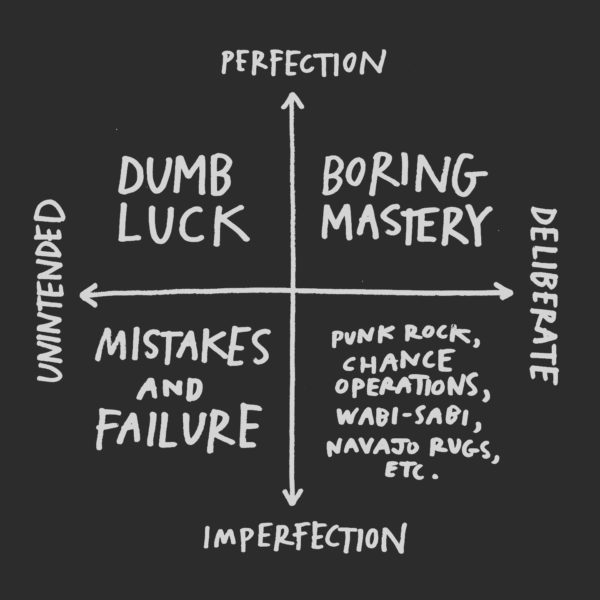 PERFECTION
DUMB
LUCK
BORING
MASTERY
UNINTENDED
DELIBERATE
MISTAKES
AND
FAILURE
PUNK ROCK,
CHANCE
OPERATIONS,
WABI-SABI,
NAVAJO RUGS,
ETC.
IMPERFECTION